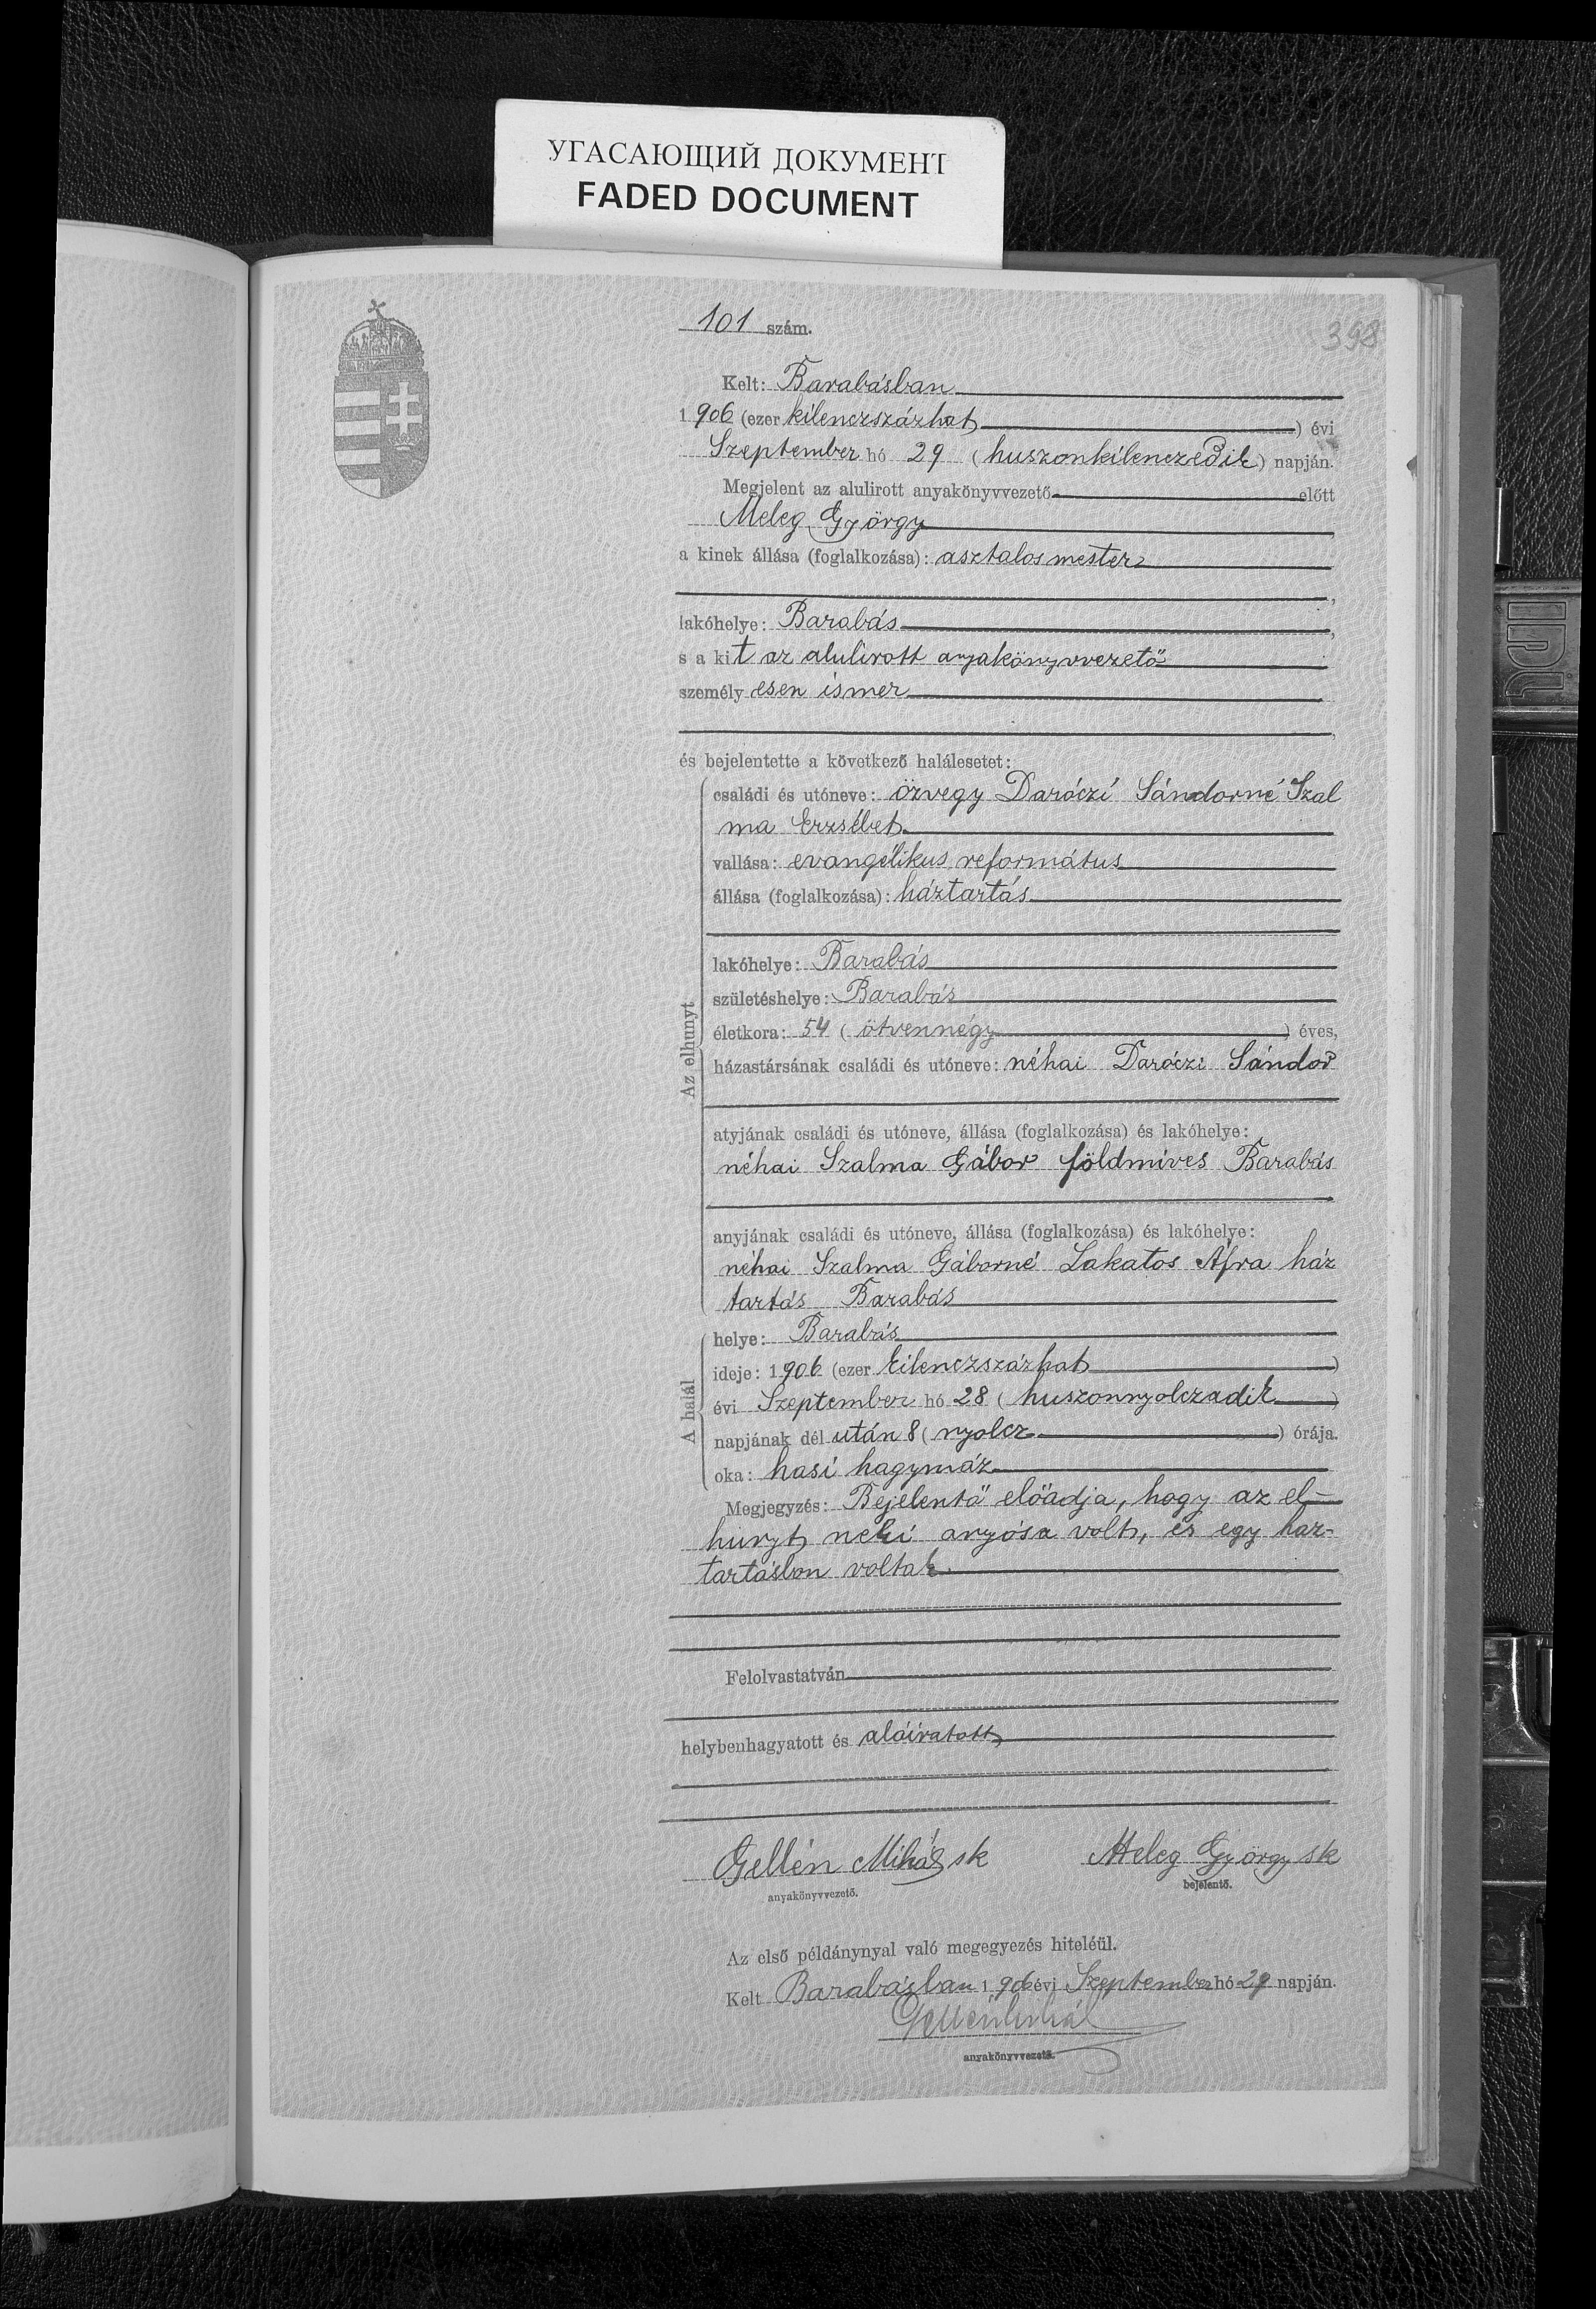 УГАСАЮЩИЙ ДОКУМЕНТ
FADED DOCUMENT
101 szám.
398
Kelt: Barabásban
1906 (ezer kilenczszázhat) évi
Szeptember hó 29 (huszonkilenczedik) napján.
Megjelent az alulirott anyakönyvvezető előtt
Meleg György,
a kinek állása (foglalkozása): asztalos mester
,
lakóhelye: Barabás,
s a kit az alulirott anyakönyvvezető
személyesen ismer
,
és bejelentette a következő halálesetet:
Az elhunyt
családi és utóneve: özvegy Daróczi Sándorné Szal
ma Erzsébet
vallása: evangélikus református
állása (foglalkozása): háztartás
lakóhelye: Barabás
születéshelye: Barabás
életkora: 54 (ötvennégy) éves,
házastársának családi és utóneve: néhai Daróczi Sándor
atyjának családi és utóneve, állása (foglalkozása) és lakóhelye:
néhai Szalma Gábor földmíves Barabás
anyjának családi és utóneve, állása (foglalkozása) és lakóhelye:
néhai Szalma Gáborné Lakatos Áfra ház
tartás Barabás
A halál
helye: Barabás
ideje: 1906 (ezer kilenczszázhat)
évi Szeptember hó 28 (huszonnyolczadik)
napjának dél után 8 (nyolcz) órája.
oka: hasi hagymáz
Megjegyzés: Bejelentő előadja, hogy az el-
hunyt neki anyósa volt, és egy ház-
tartásban voltak
Felolvastatván
helybenhagyatott és aláiratott
Gellén Mihály sk Meleg György sk
anyakönyvvezető. bejelentő.
Az első példánynyal való megegyezés hiteléül.
Kelt Barabásban 1906 évi Szeptember hó 29 napján.
Gellén Mihál
anyakönyvvezető.